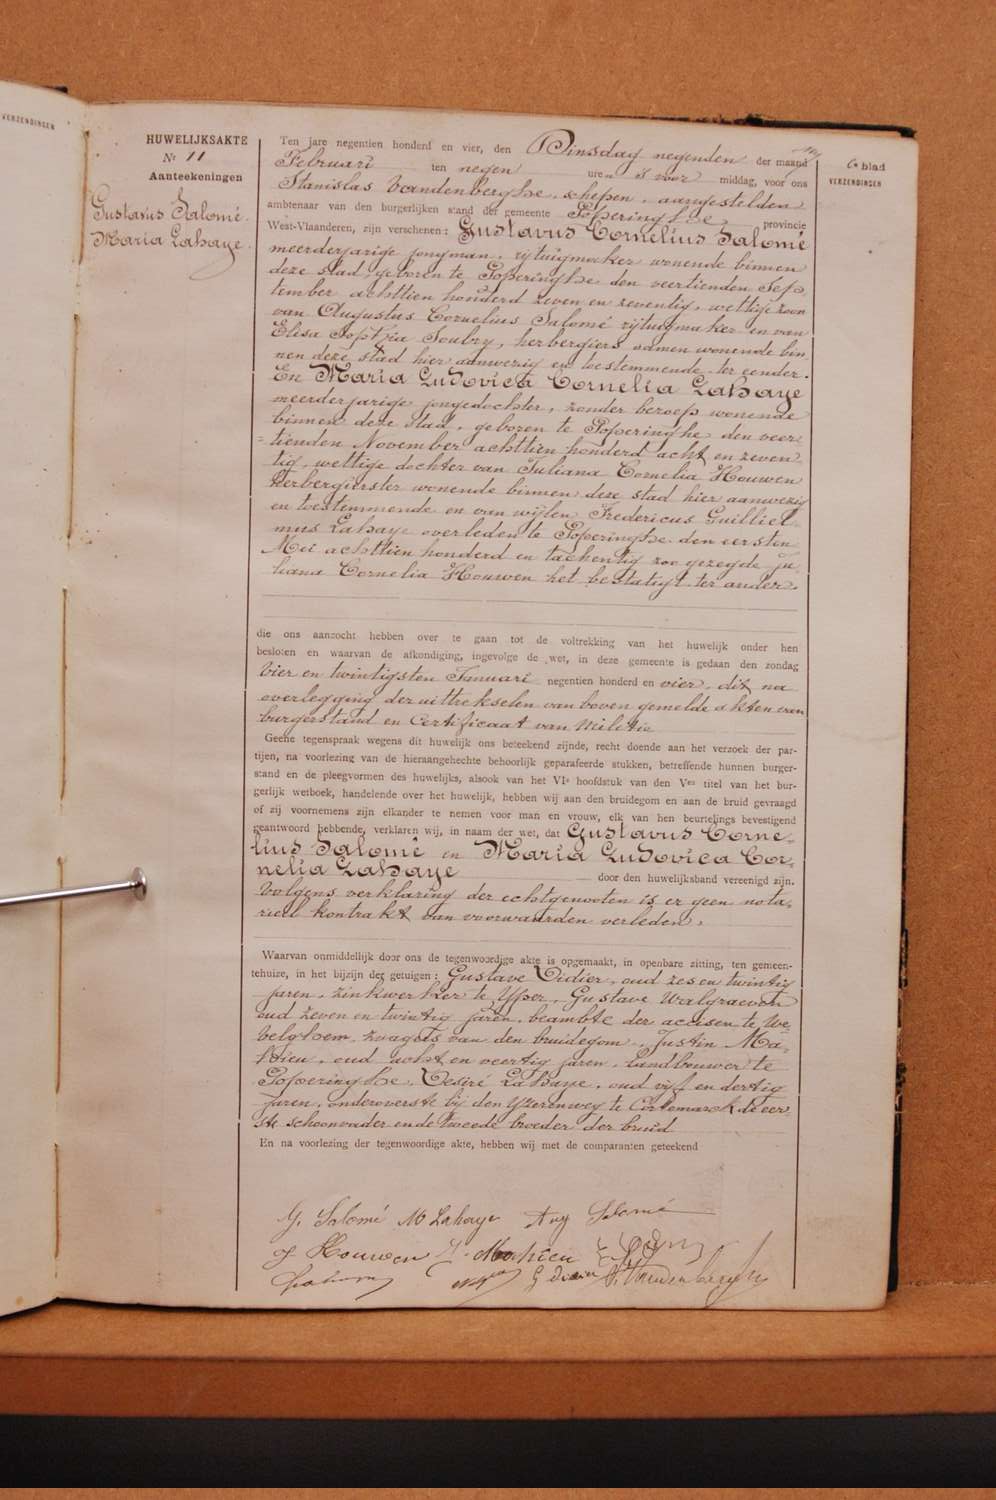 VERZENDINGEN
HUWELIJKSAKTE
Nr 11
Aanteekeningen
Gustavus Salomé.
Maria Lahaye.
6e blad
VERZENDINGEN
Ten jare negentien honderd en vier, den Dinsdag negenden der maand
Februari ten negen uren 's voor middag, voor ons
Stanislas Vandenberghe, schepen, aangestelden
ambtenaar van den burgerlijken stand der gemeente Poperinghe, provincie
West-Vlaanderen, zijn verschenen: Gustavus Cornelius Salomé
meerderjarige jongman, rijtuigmaker wonende binnen
deze stad, geboren te Poperinghe den veertienden Sep-
tember achttien honderd zeven en zeventig, wettige zoon
van Augustus Cornelius Salomé rijtuigmaker en van
Elisa Sophia Soubry, herbergiers samen wonende bin-
nen deze stad hier aanwezig en toestemmende ter eender.
En Maria Ludovica Cornelia Lahaye
meerderjarige jongedochter, zonder beroep wonende
binnen deze stad, geboren te Poperinghe den veer-
tienden November achttien honderd acht en zeven-
tig, wettige dochter van Juliana Cornelia Houwen
Herbergierster wonende binnen deze stad hier aanwezig
en toestemmende en van wijlen Fredericus Guilliel-
mus Lahaye overleden te Poperinghe den eersten
Mei achttien honderd en tachentig zoo gezegde Ju-
liana Cornelia Houwen het bestatigt ter ander.
die ons aanzocht hebben over te gaan tot de voltrekking van het huwelijk onder hen
besloten en waarvan de afkondiging, ingevolge de wet, in deze gemeente is gedaan den zondag
Vier en twintigsten Januari negentien honderd en vier, dit na
overlegging der uittrekselen van boven gemelde akten van
burgerstand en Certificaat van Militie
Geene tegenspraak wegens dit huwelijk ons beteekend zijnde, recht doende aan het verzoek der par-
tijen, na voorlezing van de hieraangehechte behoorlijk geparafeerde stukken, betreffende hunnen burger-
stand en de pleegvormen des huwelijks, alsook van het VIe hoofdstuk van den Ven titel van het bur-
gerlijk wetboek, handelende over het huwelijk, hebben wij aan den bruidegom en aan de bruid gevraagd
of zij voornemens zijn elkander te nemen voor man en vrouw, elk van hen beurtelings bevestigend
geantwoord hebbende, verklaren wij, in naam der wet, dat Gustavus Corne-
lius Salomé en Maria Ludovica Cor-
nelia Lahaye door den huwelijksband vereenigd zijn.
Volgens verklaring der echtgenooten is er geen nota-
rieel kontrakt van voorwaarden verleden.
Waarvan onmiddelijk door ons de tegenwoordige akte is opgemaakt, in openbare zitting, ten gemeen-
tehuize, in het bijzijn der getuigen: Gustave Didier, oud zes en twintig
jaren, zinkwerker te Yper, Gustave Walgraeven
oud zeven en twintig jaren, beambte der accisen te We-
velghem, zwagers van den bruidegom, Justin Ma-
hieu, oud acht en veertig jaren, landbouwer te
Poperinghe, Desiré Lahaye, oud vijf en dertig
jaren, onderoverste bij den Yzerenweg te Cortemarck de eer-
ste schoonvader en de tweede broeder der bruid
En na voorlezing der tegenwoordige akte, hebben wij met de comparanten geteekend
G. Salomé M Lahaye Aug Salomé
J Houwen J. Mahieu
G Didier S. Vandenberghe